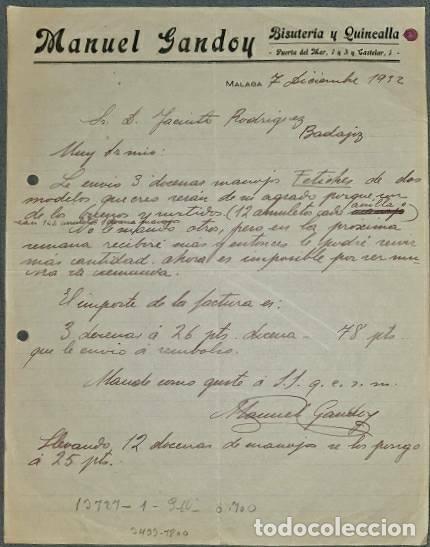 Manuel Gandoy
Bisutería y Quincalla
Puerta del Mar, 1 y 3 y Castelar, 1
MALAGA 7 Diciembre 1932
Sr. D. Jacinto Rodriguez
Badajoz
Muy Sr mio:
Le envio 3 docenas manojos Fetiches de dos
modelos que creo serán de su agrado porque son
de los buenos y surtidos (12 amuletos cada anilla o manojo
No le mando otro, pero en la proxima
semana recibiré mas y entonces le podré servir
más cantidad. ahora es imposible por ser mu
cha la demanda.
El importe de la factura es:
3 docenas á 26 pts. docena - 78 pts.
que le envio á rembolso.
Mande como guste á S.S. q. e. s. m.
Manuel Gandoy
Llevando 12 docenas de manojos se los pongo
á 25 pts.
todocoleccion.net